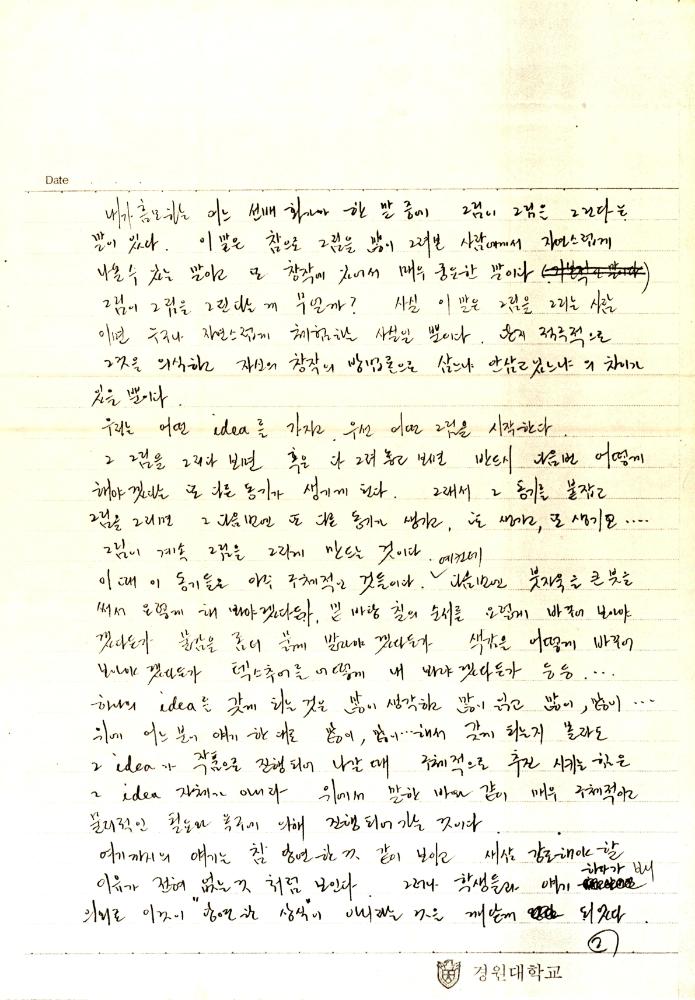 Date
내가 흠모하는 어느 선배 화가가 한 말 중에 그림이 그림을 그린다는
말이 있다. 이 말은 참으로 그림을 많이 그려본 사람에게서 자연스럽게
나올 수 있는 말이고 또 창작에 있어서 매우 중요한 말이다
그림이 그림을 그린다는 게 무얼까? 사실 이 말은 그림을 그리는 사람
이면 누구나 자연스럽게 체험하는 사실일 뿐이다. 적극적으로
그것을 의식하고 자신의 창작의 방법론으로 삼느냐 안삼고 있느냐의 차이가
있을 뿐이다.
우리는 어떤 idea를 가지고 우선 어떤 그림을 시작한다.
그 그림을 그리다 보면 혹은 다 그려 놓고 보면 반드시 다음번 어떻게
해야 겠다는 또 다른 동기가 생기게 된다. 그래서 그 동기를 붙잡고
그림을 그리면 그 다음번엔 또 다른 동기가 생기고, 또 생기고, 또 생기고 ....
그림이 계속 그림을 그리게 만드는 것이다.
이때 이 동기들은 아주 구체적인 것들이다. 예컨데 다음번엔 붓자욱을 큰 붓을
써서 요렇게 해 봐야겠다든가, 밑바탕 칠의 순서를 요렇게 바꾸어 보아야
겠다든가 물감을 좀더 묽게 발라야 겠다든가 색감을 어떻게 바꾸어
보아야 겠다든가 텍스추어를 어떻게 내 봐야 겠다든가 등등 ....
하나의 idea를 갖게 되는 것은 많이 생각하고 많이 읽고 많이, 많이 ...
위에 어느 분이 얘기 한대로 많이, 많이...해서 갖게 되는지 몰라도
그 idea가 작품으로 진행되어 나갈 때 구체적으로 추진 시키는 힘은
그 idea 자체가 아니라 위에서 말한 바와 같이 매우 구체적이고
물리적인 필요와 욕구에 의해 진행되어 가는 것이다.
여기까지의 얘기는 참 당연한 것 같이 보이고 새삼 강조해야 할
이유가 전혀 없는 것 처럼 보인다. 그러나 학생들과 얘기 하다가 보니
의외로 이것이 "당연한 상식"이 아니라는 것을 깨닫게 되었다.
2
경원대학교